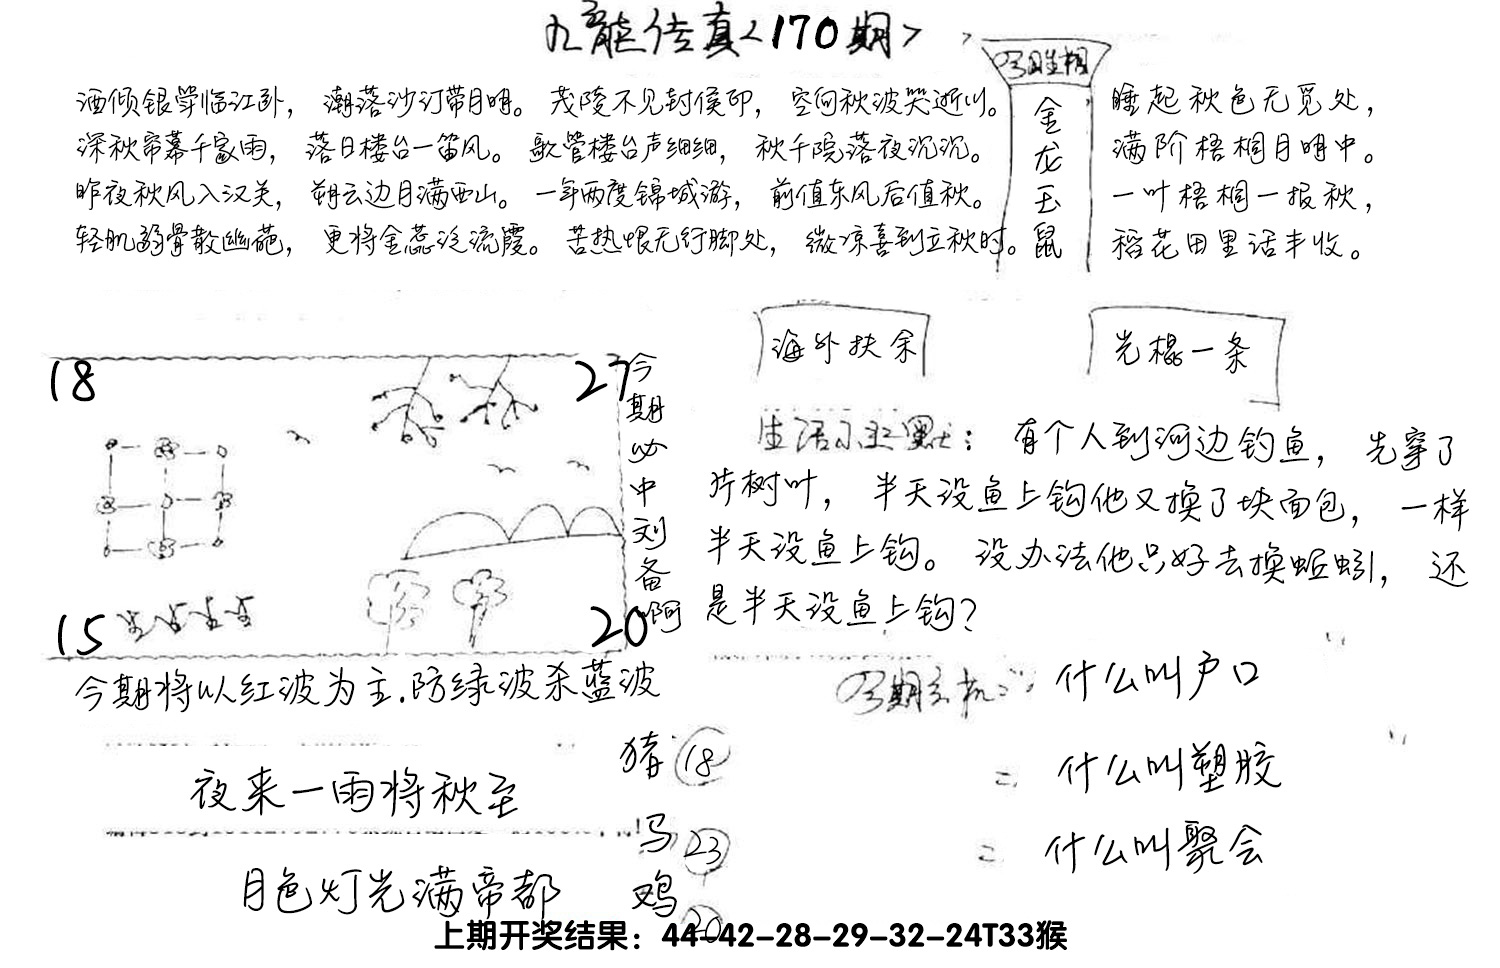 九龙传真<170期>
今期生相
金龙玉鼠
酒倾银学临江卧，潮落沙汀带月明。茂陵不见封侯印，空向秋波哭逝川。
深秋帘幕千家雨，落日楼台一笛风。歌管楼台声细细，秋千院落夜沉沉。
昨夜秋风入汉关，朔云边月满西山。一年两度锦城游，前值东风后值秋。
轻肌弱骨散幽葩，更将金蕊泛流霞。苦热恨无行脚处，微凉喜到立秋时。
睡起秋色无觅处，
满阶梧桐月明中。
一叶梧桐一报秋，
稻花田里话丰收。
18
27
15
20
今期必中刘备啊
海外扶余
光棍一条
生活小幽默：有个人到河边钓鱼，先穿了
片树叶，半天没鱼上钩他又换了块面包，一样
半天没鱼上钩。没办法他只好去换蚯蚓，还
是半天没鱼上钩？
今期将以红波为主.防绿波杀蓝波
今期玄机
什么叫户口
什么叫塑胶
什么叫聚会
夜来一雨将秋至
月色灯光满帝都
猪 18
马 23
鸡 20
上期开奖结果：44-42-28-29-32-24T33猴